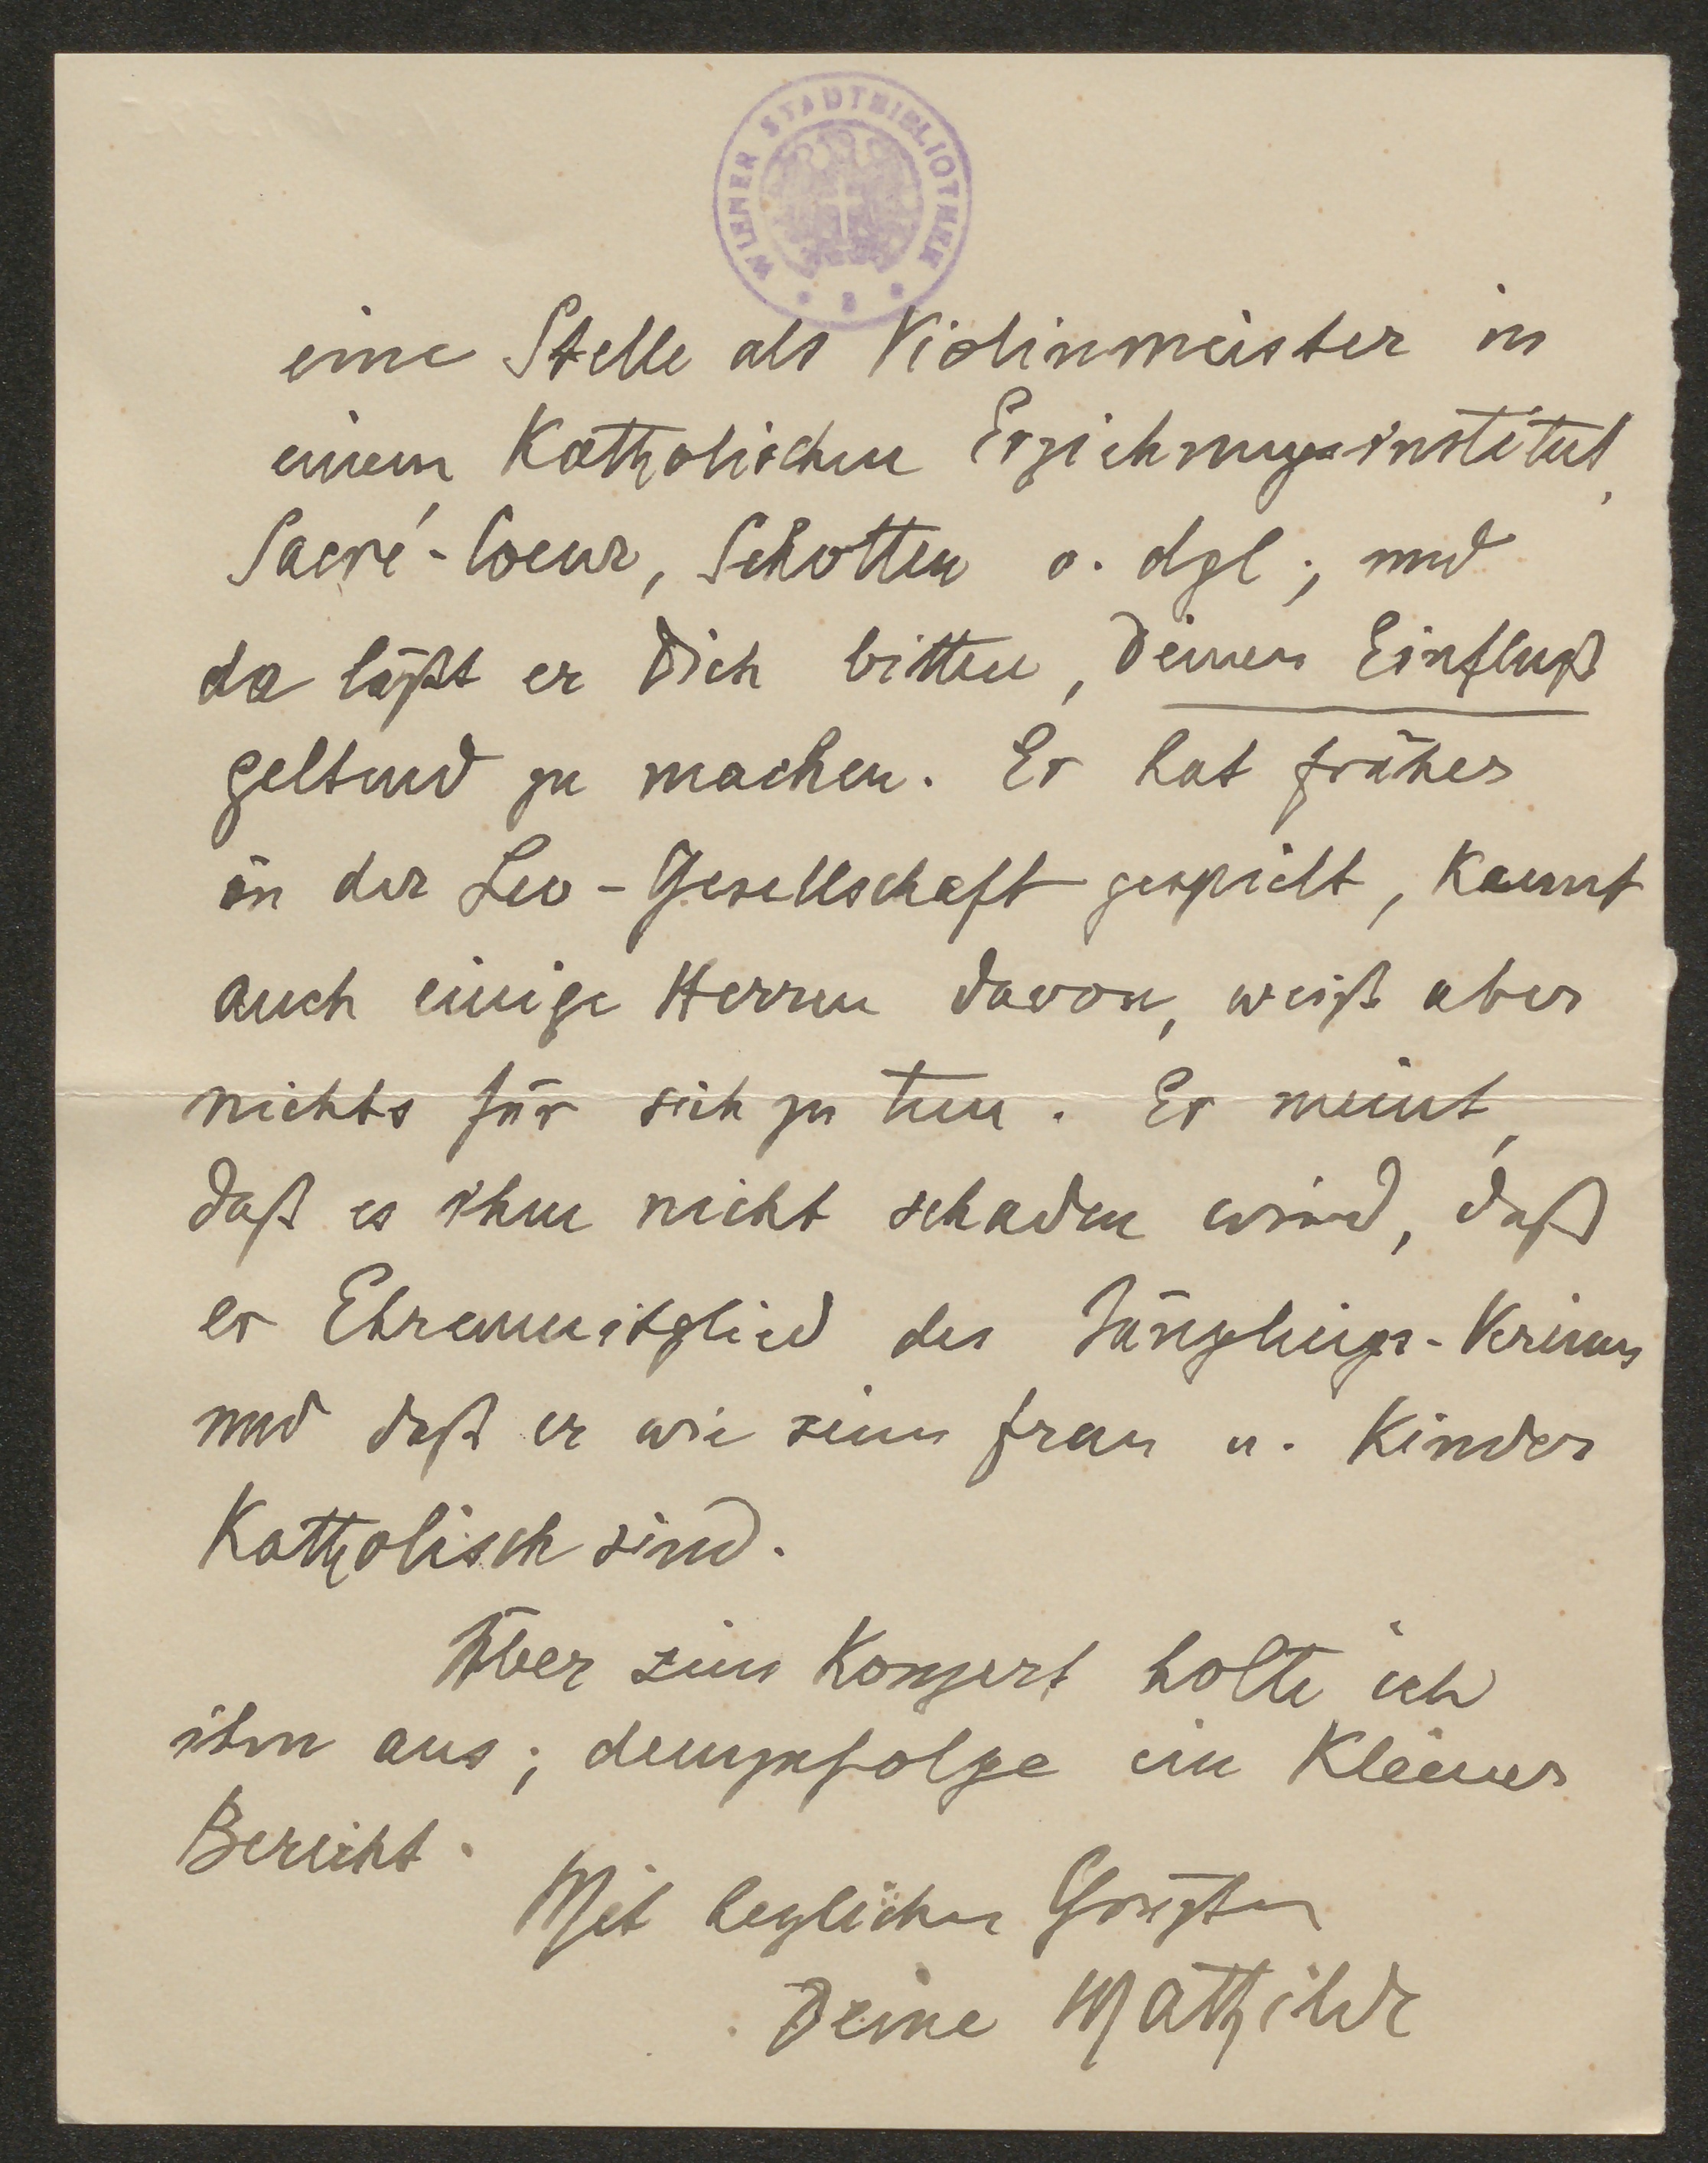 WIENER STADTBIBLIOTHEK
eine Stelle als Violinmeister in
einem Katholischen Erziehungsinstitut,
Sacré-Coeur, Schotten o. dgl.; und
da läßt er Dich bitten, Deinen Einfluß
geltend zu machen. Er hat früher
in der Leo-Gesellschaft gespielt, kennt
auch einige Herren davon, weiß aber
nichts für sich zu tun. Er meint,
daß es ihm nicht schaden wird, daß
er Ehrenmitglied des Jünglings-Vereins
und daß er wie seine Frau u. Kinder
Katholisch sind.
Über sein Konzert holte ich
ihn aus; demzufolge ein kleiner
Bericht.
Mit herzlichen Grüßen
Deine Mathilde